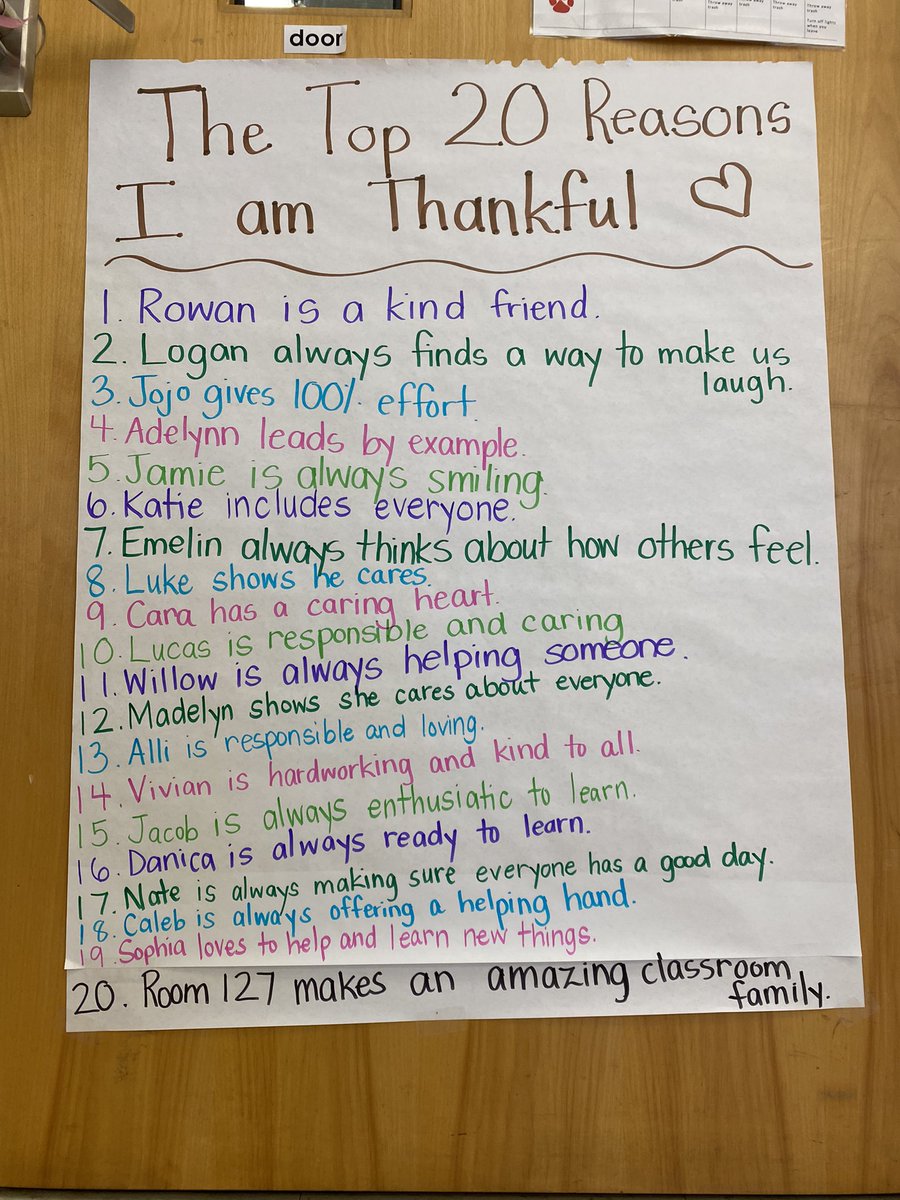 Throw away trash
Throw away trash
Throw away trash
Throw away trash
Turn off lights when you leave
door
The Top 20 Reasons
I am Thankful
1. Rowan is a kind friend.
2. Logan always finds a way to make us
laugh.
3. Jojo gives 100% effort.
4. Adelynn leads by example.
5. Jamie is always smiling.
6. Katie includes everyone.
7. Emelin always thinks about how others feel.
8. Luke shows he cares.
9. Cara has a caring heart.
10. Lucas is responsible and caring
11. Willow is always helping someone.
12. Madelyn shows she cares about everyone.
13. Alli is responsible and loving.
14. Vivian is hardworking and kind to all.
15. Jacob is always enthusiatic to learn.
16. Danica is always ready to learn.
17. Nate is always making sure everyone has a good day.
18. Caleb is always offering a helping hand.
19. Sophia loves to help and learn new things.
20. Room 127 makes an amazing classroom
family.